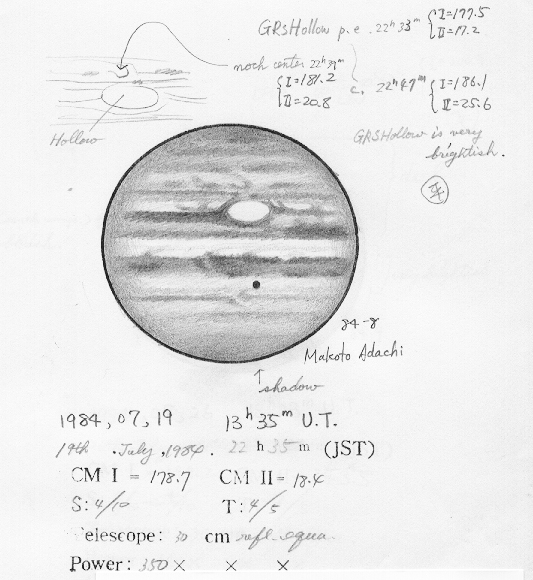 GRSHollow p.e. 22h33m { I=177.5
II=17.2
noch center 22h39m
{ I=181.2
II=20.8
c. 22h47m { I=186.1
II=25.6
Hollow
GRSHollow is very
brightish.
84-8
Makoto Adachi
↑ shadow
1984, 07, 19 13h 35m U.T.
19th . July , 1984 . 22 h 35 m (JST)
CM I = 178.7 CM II = 18.4
S: 4/10 T: 4/5
elescope: 30 cm refl. equa.
Power: 350 × × ×